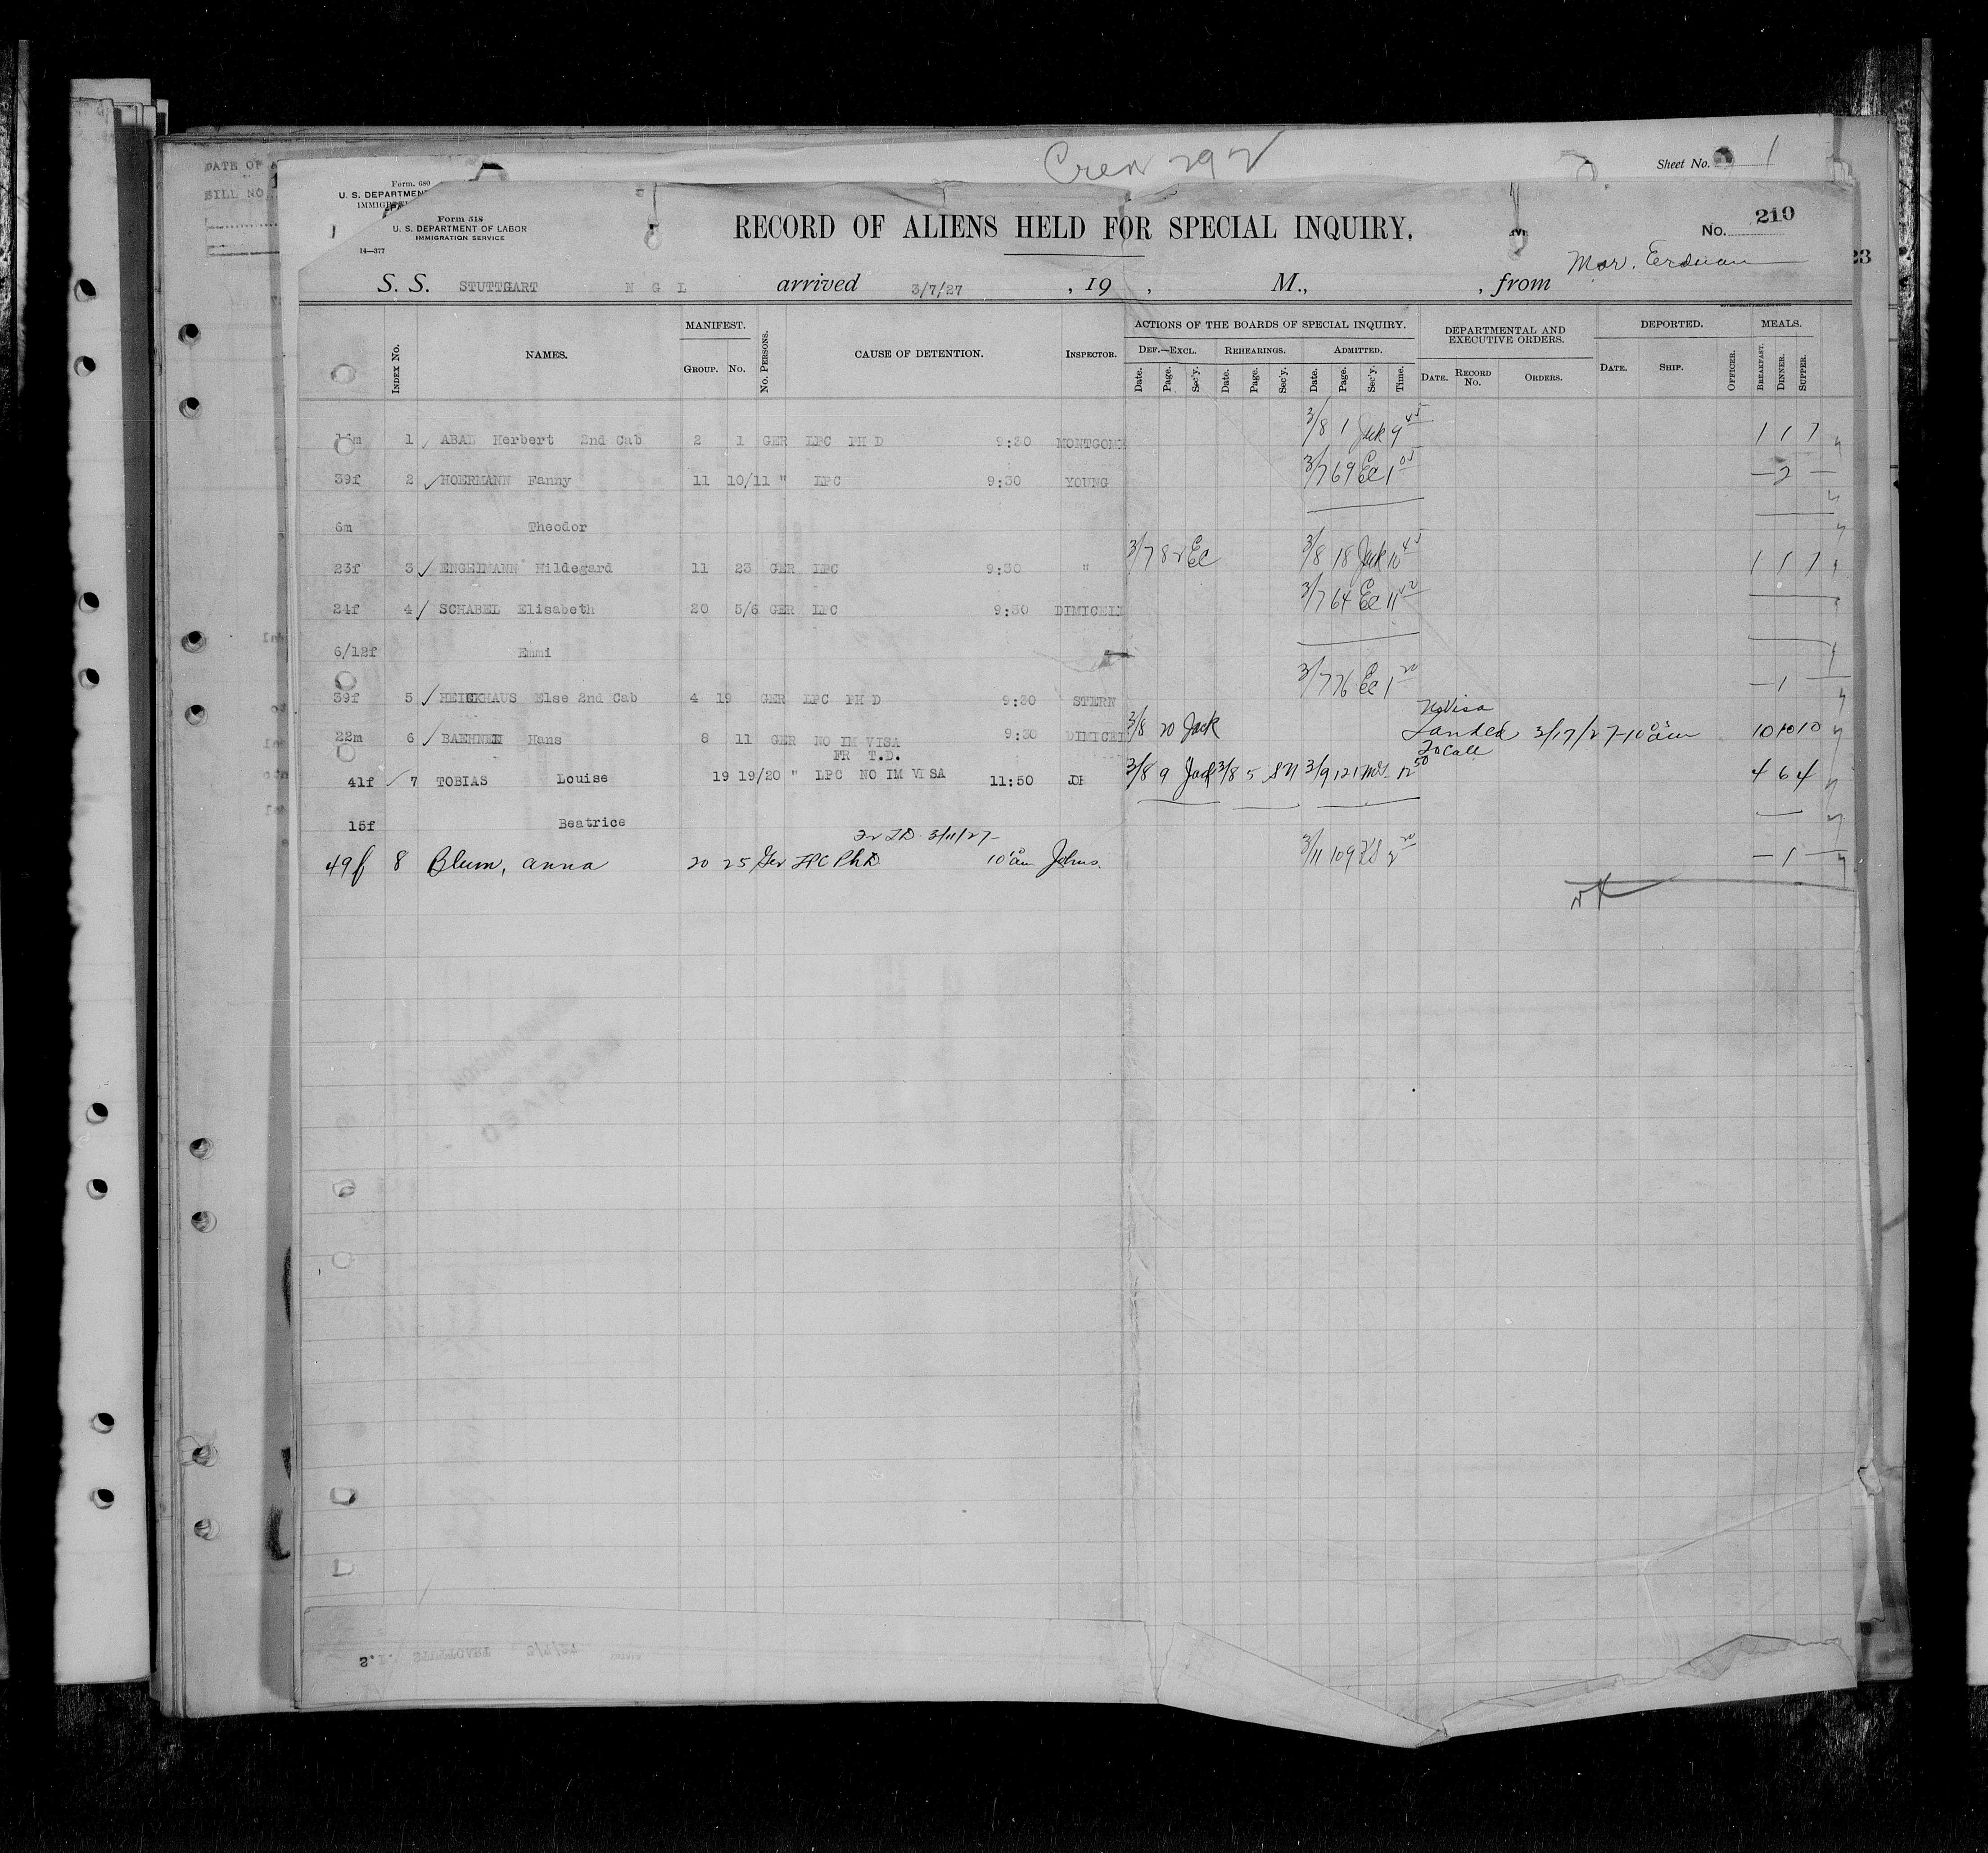 Crew 292
Sheet No. 1
DATE OF A
BILL NO.
Form. 680
U. S. DEPARTMENT
Form 518
U. S. DEPARTMENT OF LABOR
IMMIGRATION SERVICE
14—377
RECORD OF ALIENS HELD FOR SPECIAL INQUIRY.
No. 210
23
S. S. STUTTGART N G L arrived 3/7/27, 19 , M., , from Mor.
INDEX No. NAMES. MANIFEST. GROUP. No. No. PERSONS. CAUSE OF DETENTION. INSPECTOR. ACTIONS OF THE BOARDS OF SPECIAL INQUIRY. DEPARTMENTAL AND EXECUTIVE ORDERS. DEPORTED. MEALS.
DEF.—EXCL. REHEARINGS. ADMITTED.
Date. Page. Sec'y. Date. Page. Sec'y. Date. Page. Sec'y. Time. DATE. RECORD No. ORDERS. DATE. SHIP. OFFICER. BREAKFAST. DINNER. SUPPER.
1 ABAL Herbert 2nd Cab 2 1 GER LPC PH D 9:30 MONTGOME 3/8 1 Jack 9 45 1 1 1
39f 2 HOERMANN Fanny 11 10/11 " LPC 9:30 YOUNG 3/7 69 EC 1 05 — 2 —
6m Theodor
23f 3 ENGELMANN Hildegard 11 23 GER LPC 9:30 " 3/7 82 EC 3/8 18 Jack 10 45 1 1 1
24f 4 SCHABEL Elisabeth 20 5/6 GER LPC 9:30 DIMICELI 3/7 64 EC 11
6/12f Emmi
39f 5 HEICKHAUS Else 2nd Cab 4 19 GER LPC PH D 9:30 STERN 3/7 76 EC 1 20 — 1 —
No Visa
22m 6 BAEHNEN Hans 8 11 GER NO IM VISA 9:30 DIMICEL 3/8 20 Jack Landed 3/17/27 - 10 am 10 10 10
FR T.D. To Call
41f 7 TOBIAS Louise 19 19/20 " LPC NO IM VISA 11:50 JOH 3/8 9 Jack 3/8 5 SN 3/9 121 12 50 4 6 4
15f Beatrice
Fr TD 3/11/27
49f 8 Blum, Anna 20 25 Ger LPC PhD 10 am Johns. 3/11 109 2 20 — 1 —
S.I. STUTTGART 3/7/27